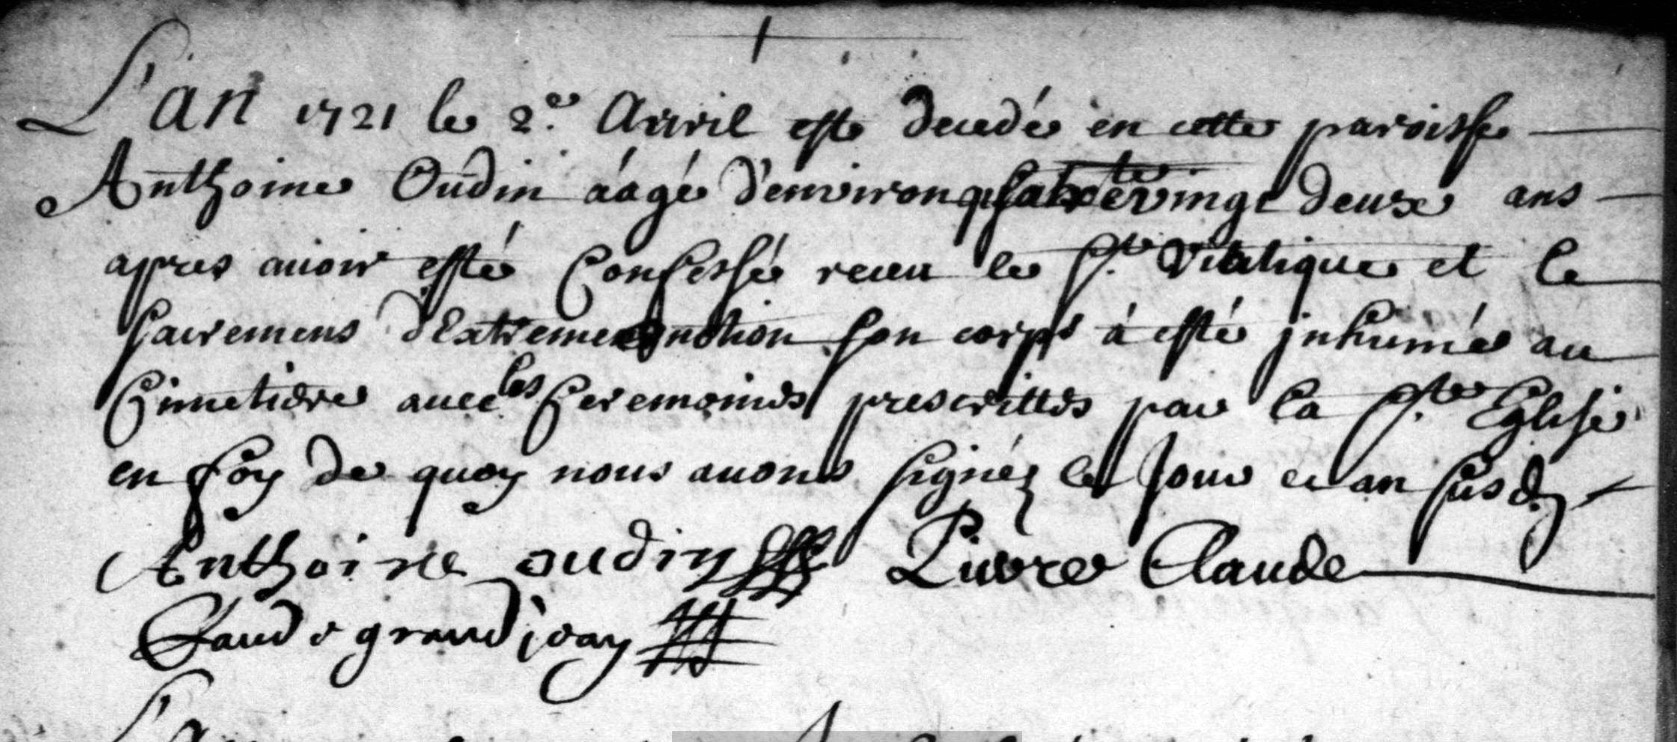 L'an 1721 le 2.e Avril est decedé en cette paroisse
Anthoine Oudin áagé d'environ quatre vingt deux ans
apres avoir esté Confessé receu le St. Viatique et le
Sacremens d'Extreme onction son corps à esté jnhumé au
Cimetiere avec les Ceremoinis prescrittes par la Ste. Eglise
en foy de quoy nous avons signéz les Jour et an susd.
Anthoine oudin Claude
Claude grand jean